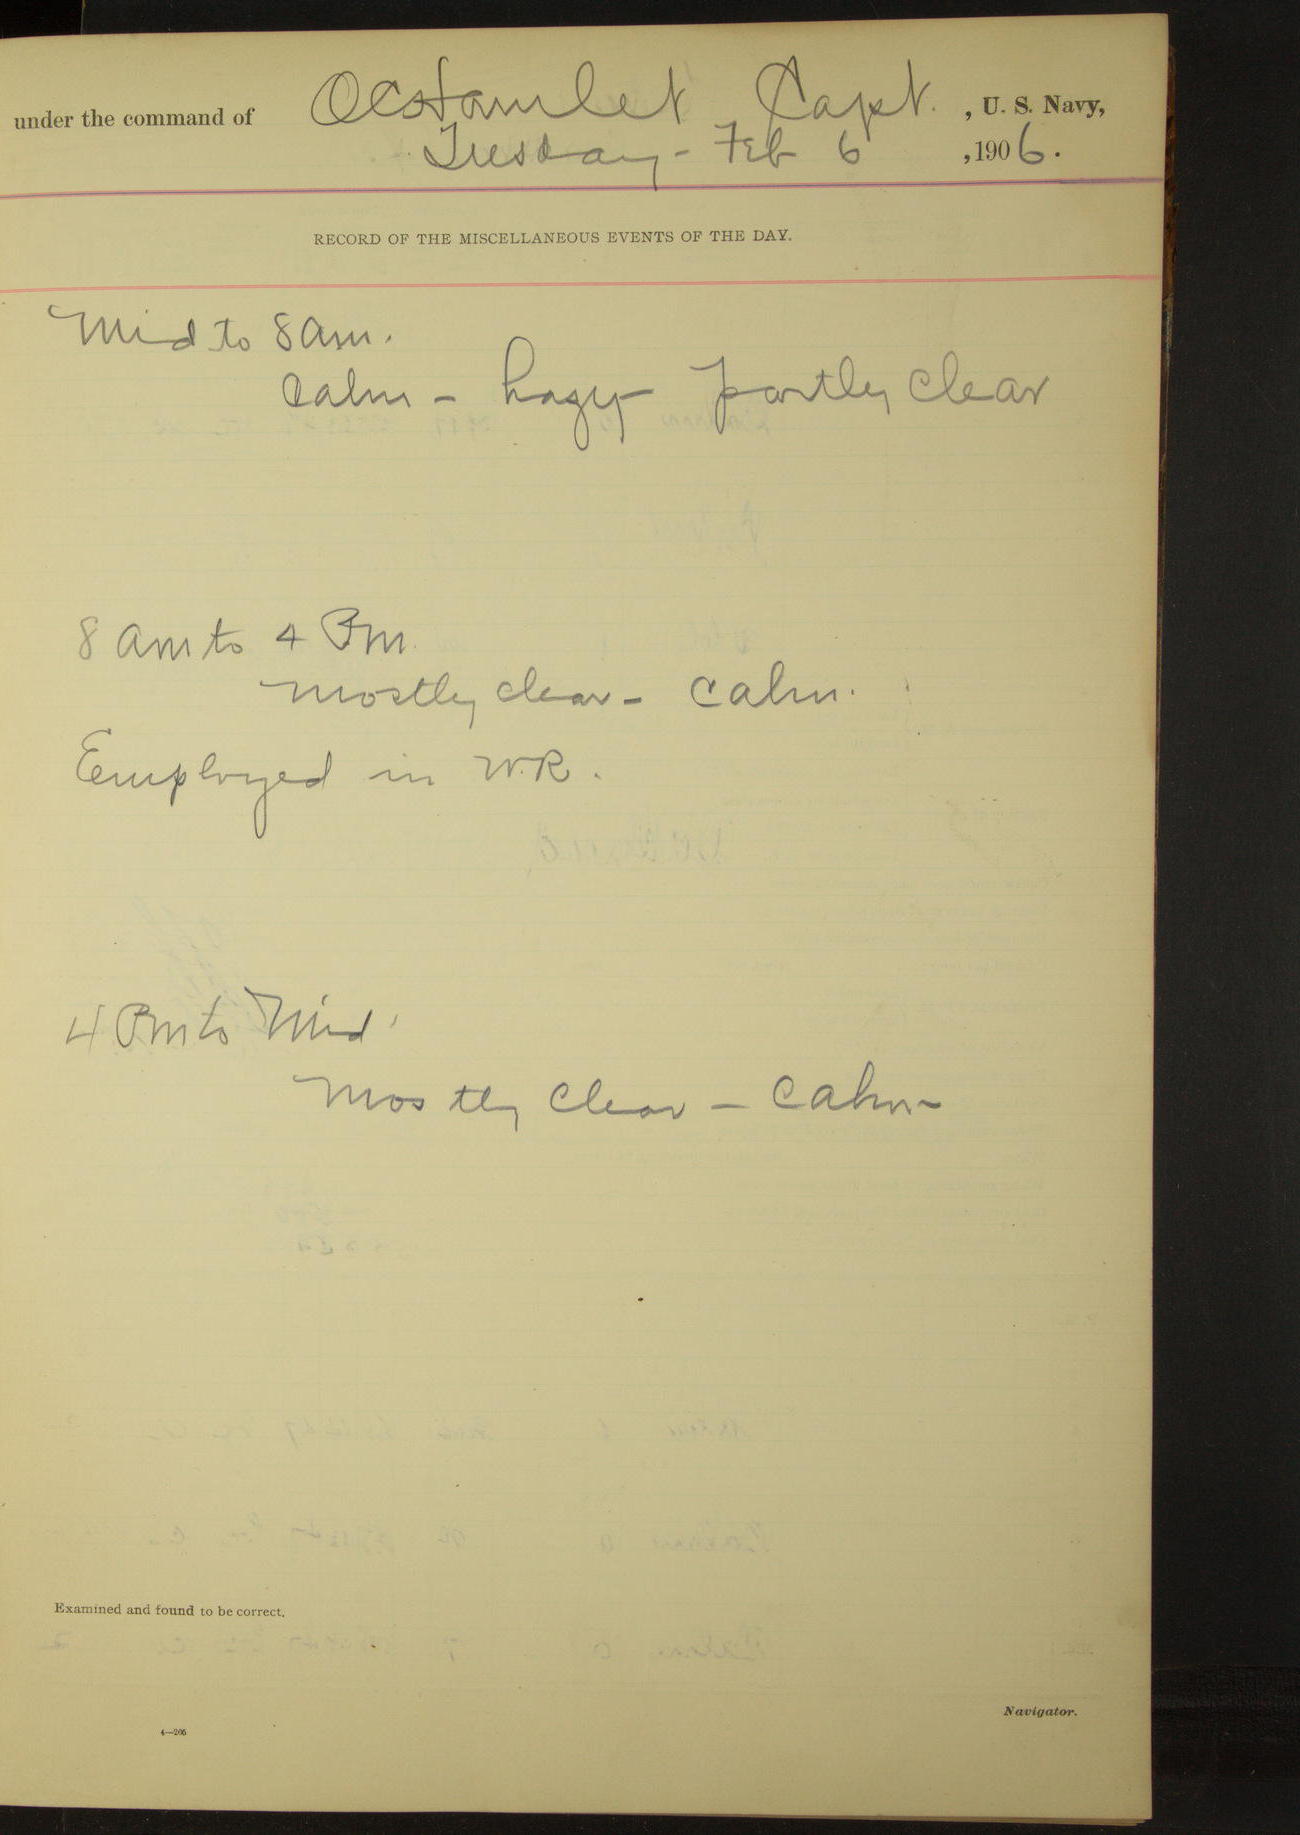 under the command of OCHamlet Capt. , U. S. Navy,
Tuesday - Feb 6 , 1906.
RECORD OF THE MISCELLANEOUS EVENTS OF THE DAY.
Mid to 8 am.
Calm - hazy - partly clear
8 am to 4 Pm.
mostly clear - Calm.
Employed in W.R.
4 Pm to Mid
Mostly Clear - Calm -
Examined and found to be correct.
Navigator.
4—206